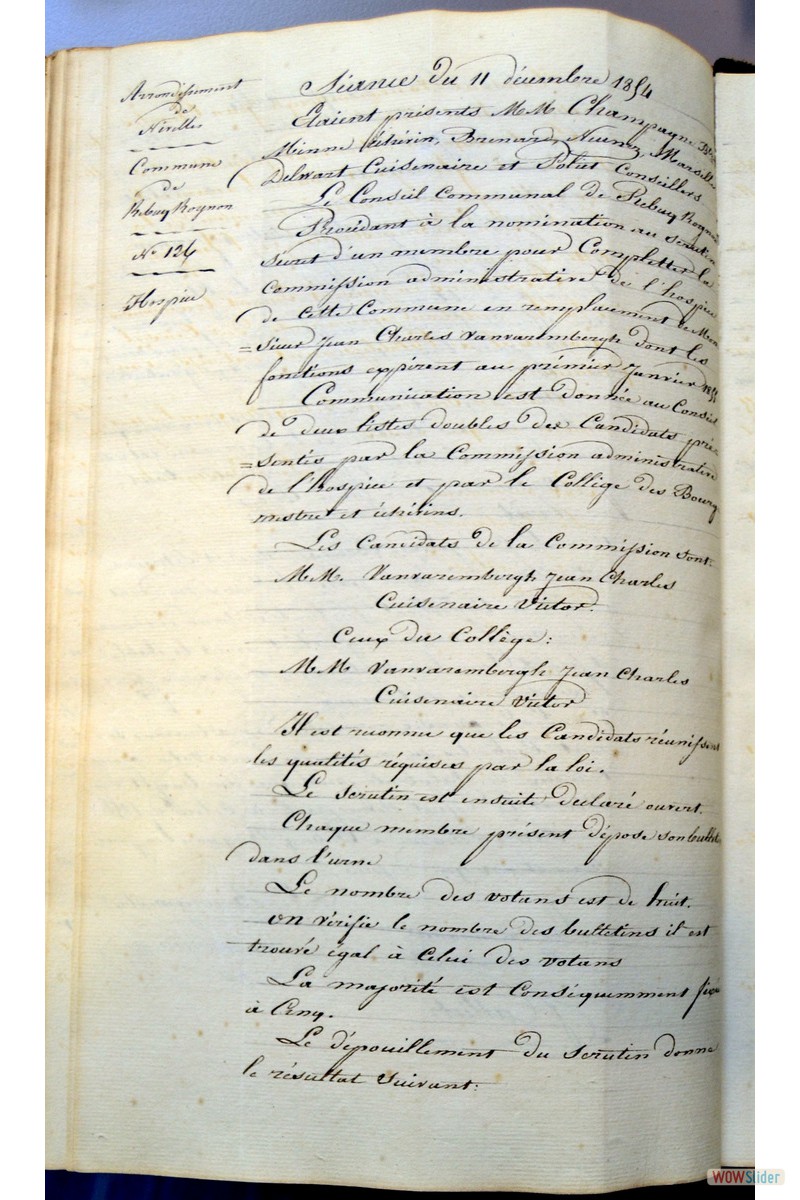 Arrondissement
de
Nivelles
Commune
de
Rebecq Rognon
No 124
Hospice
Séance du 11 décembre 1854
Etaient présents MM Champagne
Minne échevin, Brenard, Marsille
Delwart Cuisenaire et Polet Conseillers
Le Conseil Communal de Rebecq Rognon
Procédant à la nomination au scrutin
secret d'un membre pour Completter la
commission administrative de l'hospice
de cette Commune en remplacement de Mon
=sieur Jean Charles Vanvarembergh dont les
fonctions expirent au prémier Janvier 1855
Communication est donnée au Conseil
de deux listes doubles des Candidats pré
=sentés par la Commission administrative
de l'hospice et par le Collège des Bourg
mestre et échevins.
Les Candidats de la Commission sont:
MM. Vanvarembergh Jean Charles
Cuisenaire Victor.
Ceux du Collège:
MM Vanvarembergh Jean Charles
Cuisenaire Victor
Il est reconnu que les Candidats réunissent
les qualités réquises par la loi.
Le scrutin est ensuite déclaré ouvert.
Chaque membre présent dépose son bulletin
dans l'urne
Le nombre des votans est de huit.
on vérifie le nombre des bulletins il est
trouvé égal à Celui des votans
La majorité est Conséquemment fixée
à Cinq.
Le dépouillement du scrutin donne
le résultat suivant:
WOWSlider